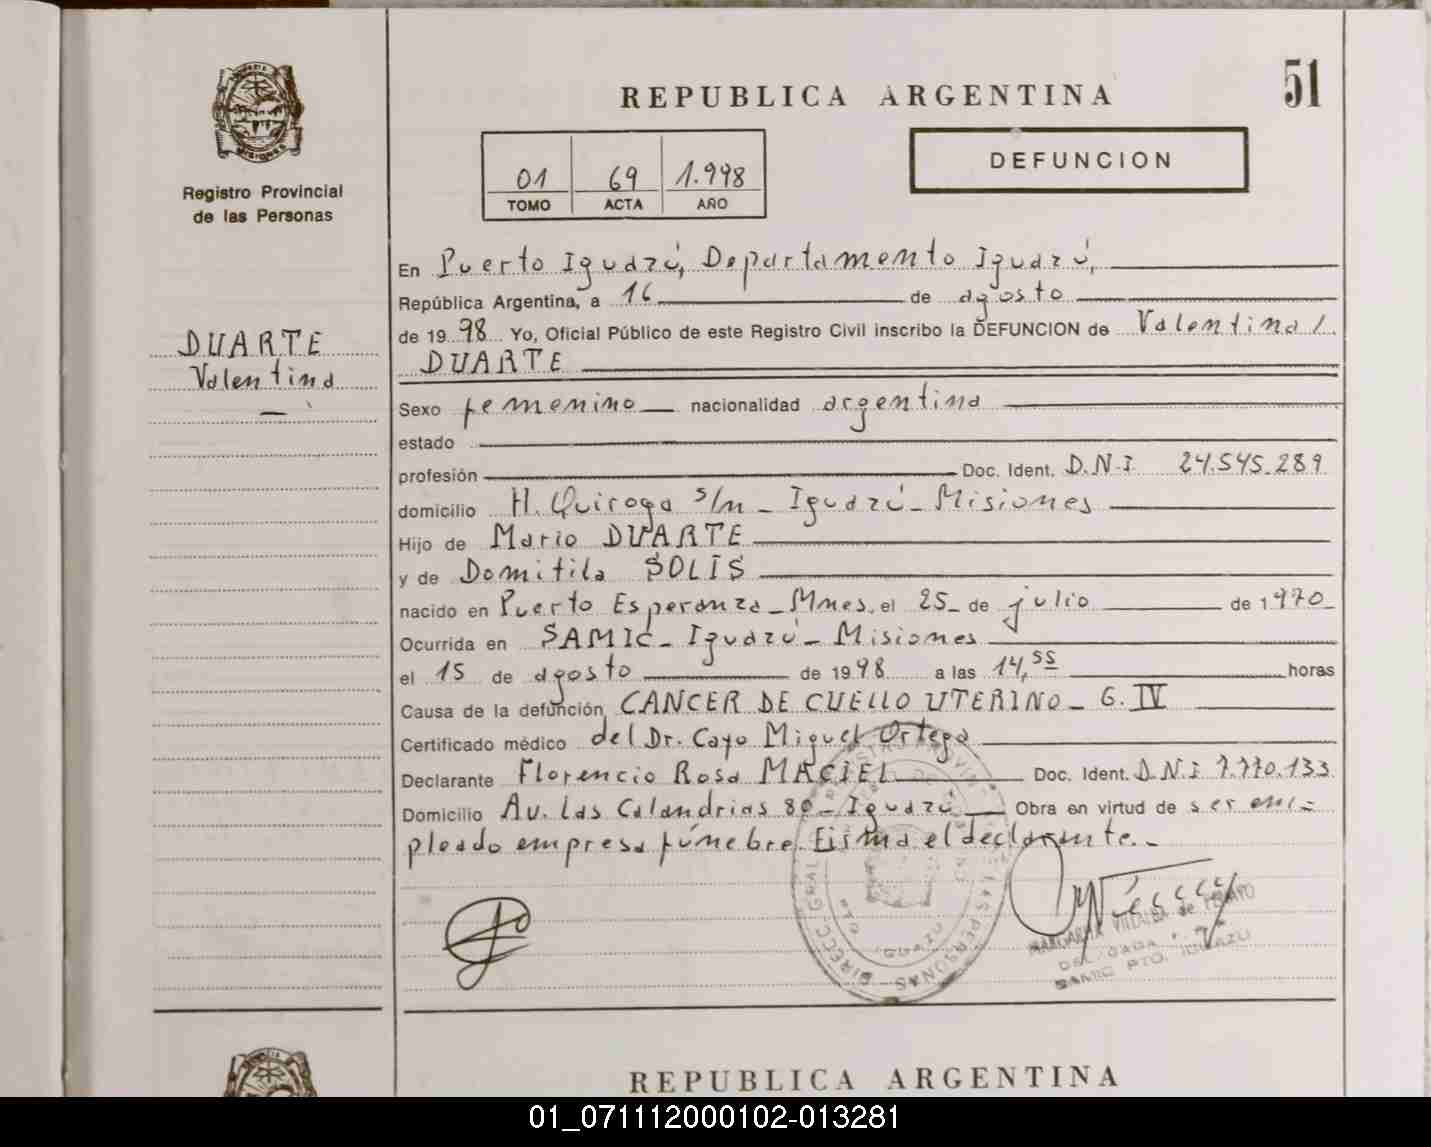 REPUBLICA ARGENTINA
51
MISIONES
Registro Provincial
de las Personas
DEFUNCION
01 69 1.998
TOMO ACTA AÑO
DUARTE
Valentina
En Puerto Iguazú, Departamento Iguazú,
República Argentina, a 16 de agosto
de 1998 Yo, Oficial Público de este Registro Civil inscribo la DEFUNCION de Valentina/
DUARTE
Sexo femenino nacionalidad argentina
estado
profesión Doc. Ident. D.N.I 24.545.289
domicilio H. Quiroga s/n - Iguazú - Misiones
Hijo de Mario DUARTE
y de Domitila SOLIS
nacido en Puerto Esperanza - Mnes. el 25 de julio de 1970
Ocurrida en SAMIC - Iguazú - Misiones
el 15 de agosto de 1998 a las 14,55 horas
Causa de la defunción CANCER DE CUELLO UTERINO - G. IV
Certificado médico del Dr. Cayo Miguel Ortega
Declarante Florencio Rosa MACIEL Doc. Ident. D.N.I 7.770.133
Domicilio Av. Las Calandrias 80 - Iguazú Obra en virtud de ser em=
pleado empresa fúnebre. Firma el declarante.-
DIRECC. GRAL. DE LAS PERSONAS
MARGARITA VILLALBA de
SAMIC PTO. IGUAZU
REPUBLICA ARGENTINA
01_071112000102-013281